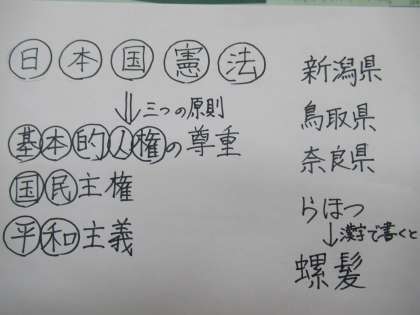 日本国憲法
⇓三つの原則
基本的人権の尊重
国民主権
平和主義
新潟県
鳥取県
奈良県
らほつ
↓漢字で書くと
螺髪